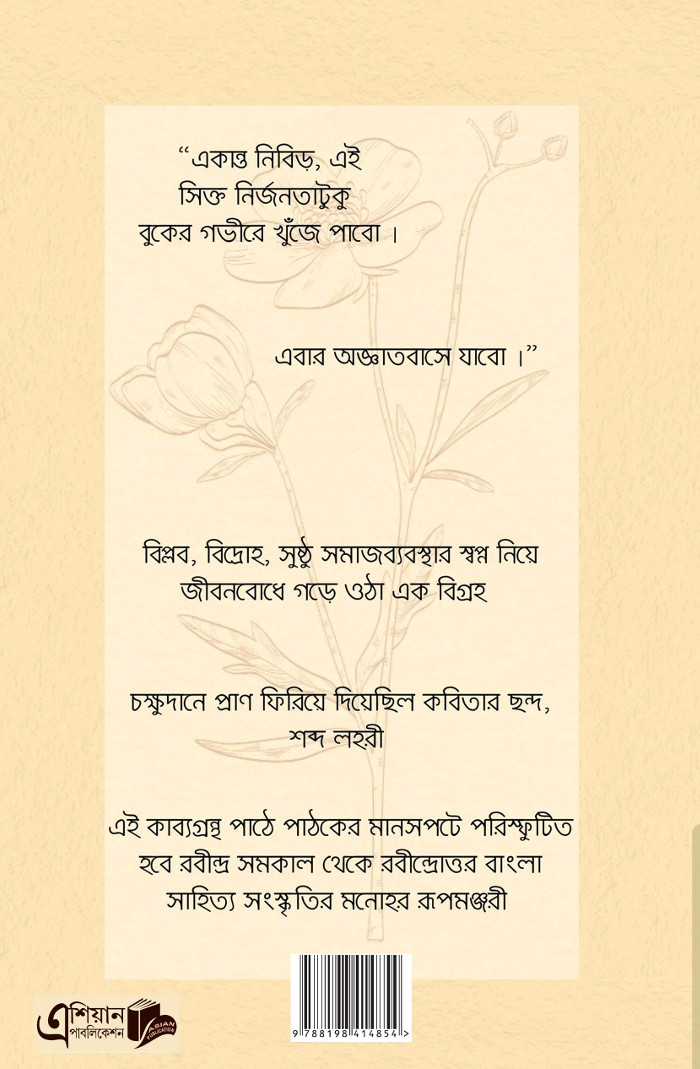 “একান্ত নিবিড়, এই
সিক্ত নির্জনতাটুকু
বুকের গভীরে খুঁজে পাবো ।
এবার অজ্ঞাতবাসে যাবো ।”
বিপ্লব, বিদ্রোহ, সুষ্ঠু সমাজব্যবস্থার স্বপ্ন নিয়ে
জীবনবোধে গড়ে ওঠা এক বিগ্রহ
চক্ষুদানে প্রাণ ফিরিয়ে দিয়েছিল কবিতার ছন্দ,
শব্দ লহরী
এই কাব্যগ্রন্থ পাঠে পাঠকের মানসপটে পরিস্ফুটিত
হবে রবীন্দ্র সমকাল থেকে রবীন্দ্রোত্তর বাংলা
সাহিত্য সংস্কৃতির মনোহর রূপমঞ্জরী
9 788198 414854 >
এশিয়ান
পাবলিকেশন
ASIAN
PUBLICATION